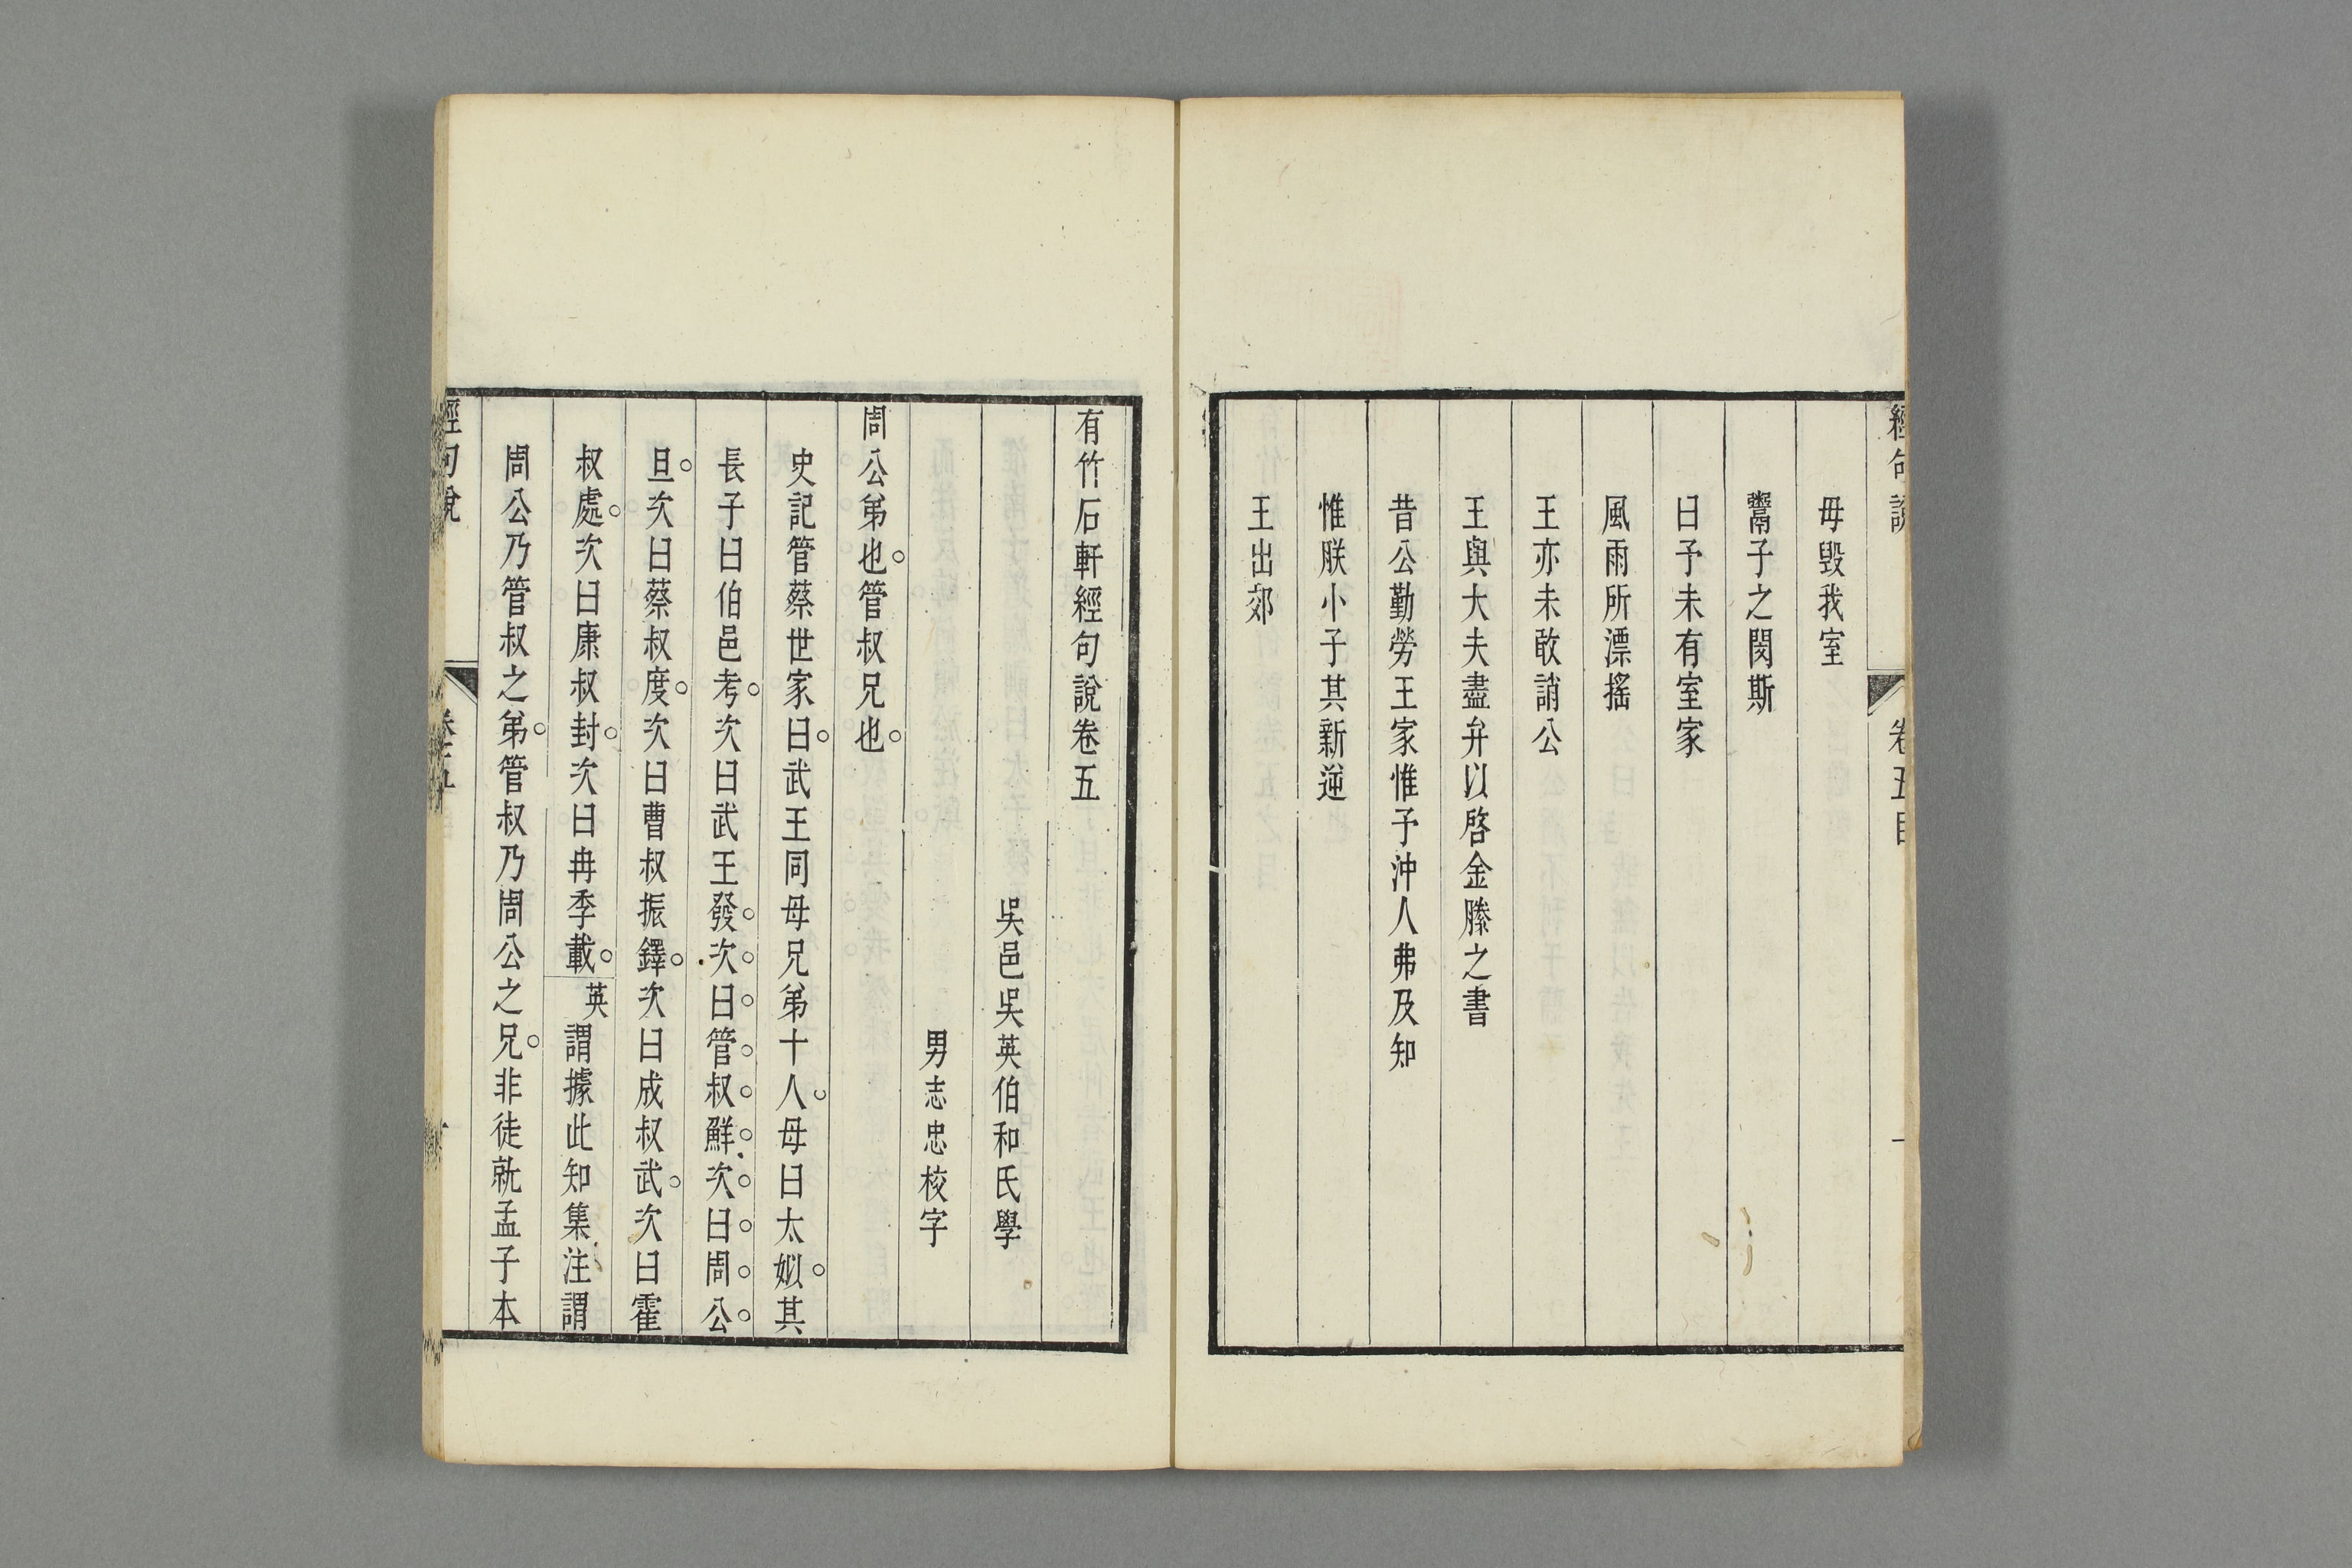 經句說 卷五目 一
毋毀我室
鬻子之閔斯
曰予未有室家
風雨所漂搖
王亦未敢誚公
王與大夫盡弁以啓金縢之書
昔公勤勞王家惟予沖人弗及知
惟朕小子其新逆
王出郊
有竹石軒經句說卷五
吳邑吳英伯和氏學
男志忠校字
周公弟也。管叔兄也。
史記管蔡世家曰。武王同母兄弟十人。母曰太姒。其
長子曰伯邑考。次曰武王發。次。曰。管。叔。鮮。次。曰。周。公。
旦。次曰蔡叔度。次曰曹叔振鐸。次曰成叔武。次曰霍
叔處。次曰康叔封。次曰冉季載。英謂據此知集注謂
周公乃管叔之弟。管叔乃周公之兄。非徒就孟子本
經句說 卷五